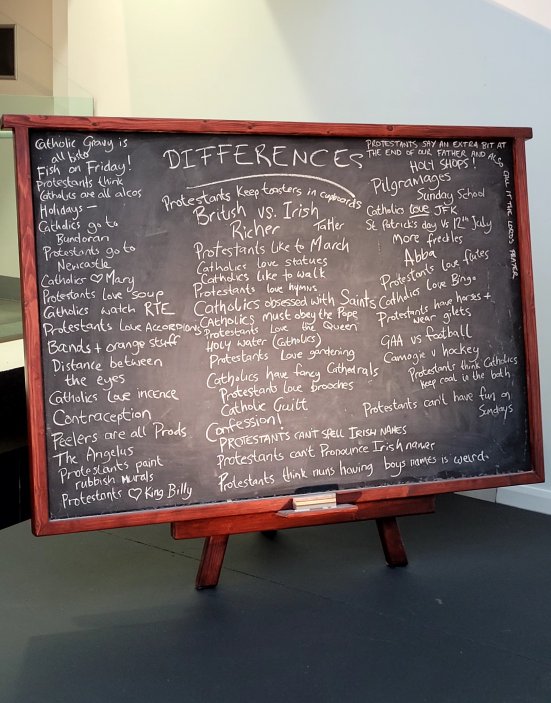 DIFFERENCES
Catholic Gravy is
all bisto
Fish on Friday!
Protestants think
Catholics are all alcos
Holidays –
Catholics go to
Bundoran
Protestants go to
Newcastle
Catholics ♡ Mary
Protestants love soup
Catholics watch RTE
Protestants Love Accordions
Bands + orange stuff
Distance between
the eyes
Catholics Love incence
Contraception
Peelers are all Prods
The Angelus
Protestants paint
rubbish murals
Protestants ♡ King Billy
Protestants Keep toasters in cupboards
British vs. Irish
Richer Taller
Protestants like to March
Catholics love statues
Catholics like to walk
Protestants love hymns
Catholics obsessed with Saints
Catholics must obey the Pope
Protestants Love the Queen
Holy water (Catholics)
Protestants Love gardening
Catholics have fancy Cathedrals
Protestants Love brooches
Catholic Guilt
Confession!
PROTESTANTS CAN'T SPELL IRISH NAMES
Protestants can't Pronounce Irish names
Protestants think nuns having boys names is weird.
PROTESTANTS SAY AN EXTRA BIT AT
THE END OF OUR FATHER AND ALSO
CALL IT THE LORDS PRAYER
HOLY SHOPS!
Pilgramages
Sunday School
Catholics Love JFK
St Patricks day vs 12th July
More freckles
Abba
Protestants love flutes
Catholics Love Bingo
Protestants have horses +
wear gilets
GAA vs football
Camogie v hockey
Protestants think Catholics
keep coal in the bath
Protestants can't have fun on
Sundays